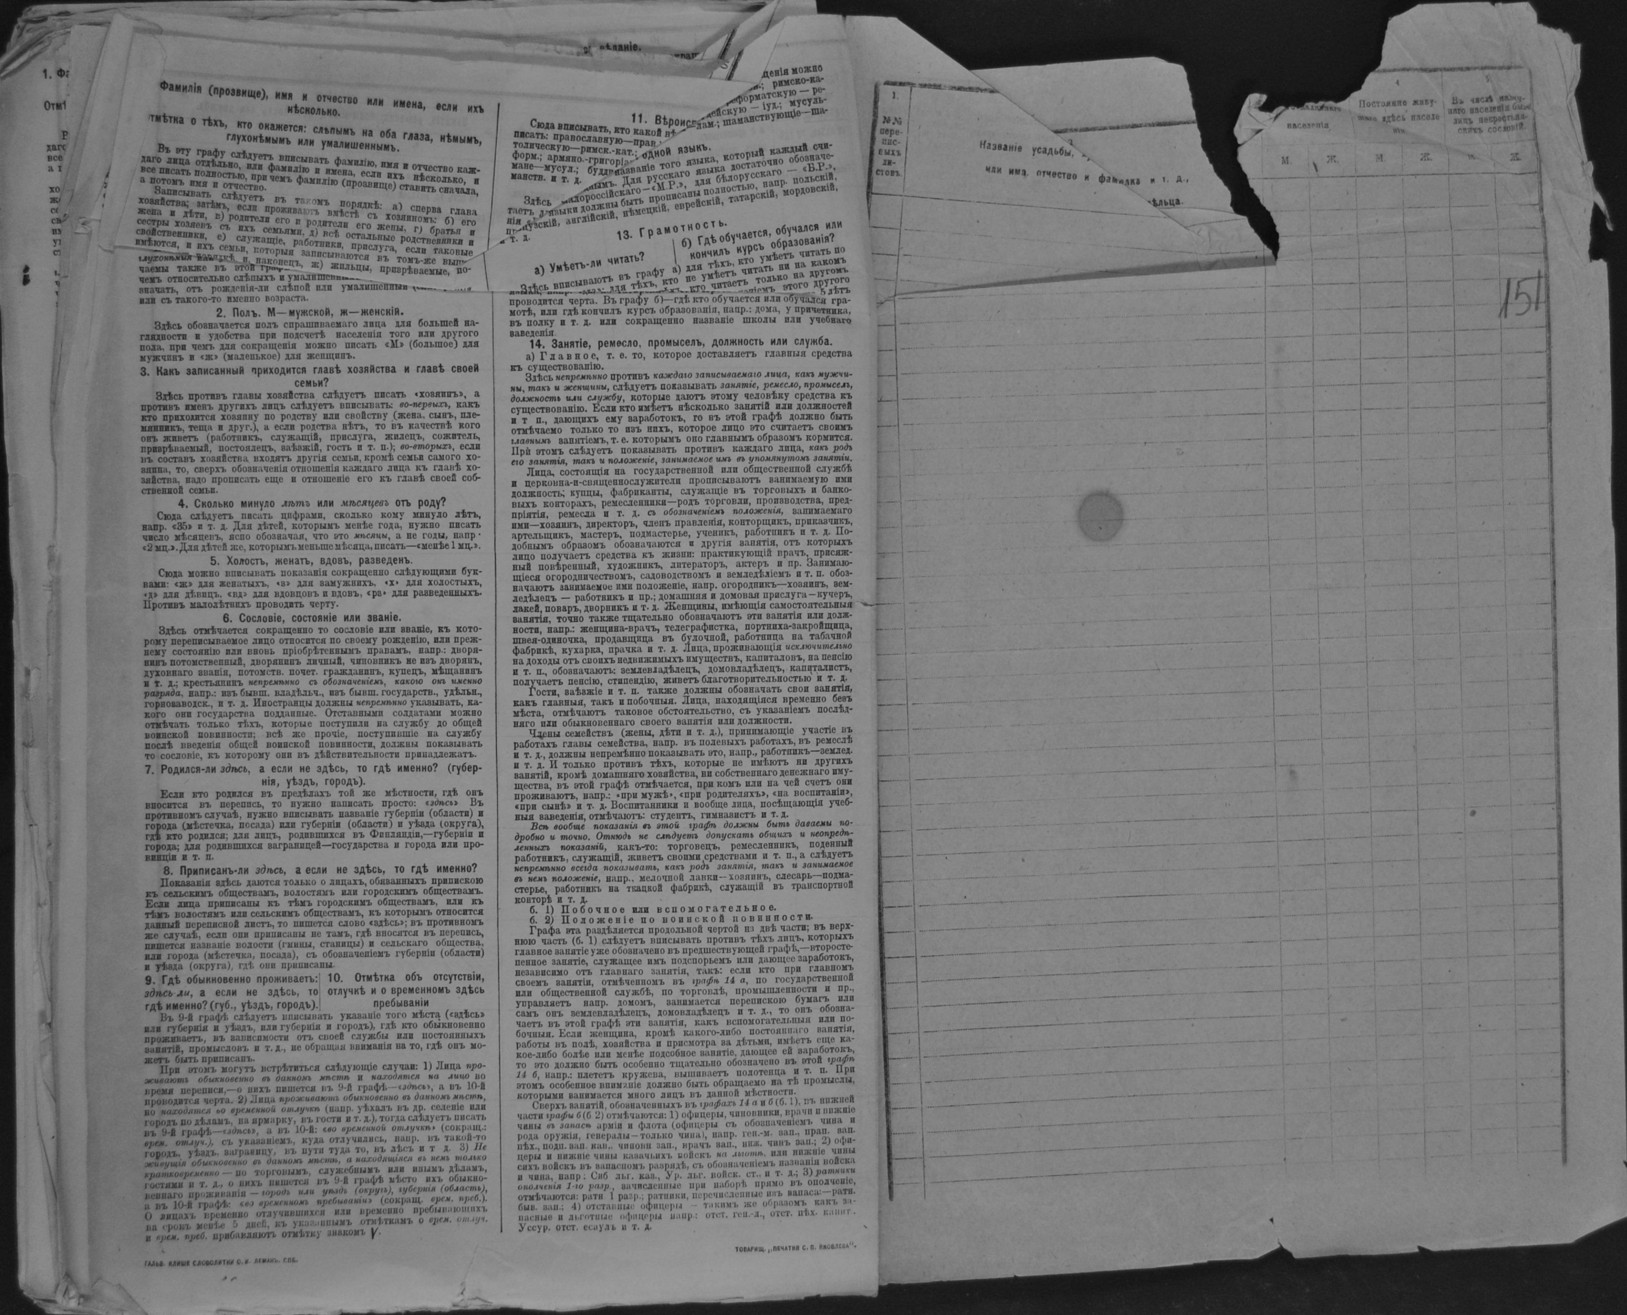 Фамилія (прозвище), имя и отчество или имена, если ихъ
нѣсколько.
тмѣтка о тѣхъ, кто окажется: слѣпымъ на оба глаза, нѣмымъ,
глухонѣмымъ или умалишеннымъ.
Въ эту графу слѣдуетъ вписывать фамилію, имя и отчество каж-
даго лица отдѣльно, или фамилію и имена, если ихъ нѣсколько, и
все писать полностью, при чемъ фамилію (прозвище) ставить сначала,
а потомъ имя и отчество.
Записывать слѣдуетъ въ такомъ порядкѣ: а) сперва глава
хозяйства; затѣмъ, если проживаютъ вмѣстѣ съ хозяиномъ: б) его
жена и дѣти, в) родители его и родители его жены, г) братья и
сестры хозяевъ съ ихъ семьями, д) всѣ остальные родственники и
свойственники, е) служащіе, работники, прислуга, если таковые
имѣются, и ихъ семьи, которыя записываются въ томъ-же
и, наконецъ, ж) жильцы, призрѣваемые, по-
чаемы также въ этой
чемъ относительно слѣпыхъ и
значать, отъ рожденія-ли слѣпой или умалишенный
или съ такого-то именно возраста.
2. Полъ. М—мужской, ж—женскій.
Здѣсь обозначается полъ спрашиваемаго лица для большей на-
глядности и удобства при подсчетѣ населенія того или другого
пола, при чемъ для сокращенія можно писать «М» (большое) для
мужчинъ и «ж» (маленькое) для женщинъ.
3. Какъ записанный приходится главѣ хозяйства и главѣ своей
семьи?
Здѣсь противъ главы хозяйства слѣдуетъ писать «хозяинъ», а
противъ именъ другихъ лицъ слѣдуетъ вписывать: во-первыхъ, какъ
кто приходится хозяину по родству или свойству (жена, сынъ, пле-
мянникъ, теща и друг.), а если родства нѣтъ, то въ качествѣ кого
онъ живетъ (работникъ, служащій, прислуга, жилецъ, сожитель,
призрѣваемый, постоялецъ, заѣзжій, гость и т. п.); во-вторыхъ, если
въ составъ хозяйства входятъ другія семьи, кромѣ семьи самого хо-
зяина, то, сверхъ обозначенія отношенія каждаго лица къ главѣ хо-
зяйства, надо прописать еще и отношеніе его къ главѣ своей соб-
ственной семьи.
4. Сколько минуло лѣтъ или мѣсяцевъ отъ роду?
Сюда слѣдуетъ писать цифрами, сколько кому минуло лѣтъ,
напр. «35» и т. д. Для дѣтей, которымъ менѣе года, нужно писать
число мѣсяцевъ, ясно обозначая, что это мѣсяцы, а не годы, напр.
«2 мц.». Для дѣтей же, которымъ меньше мѣсяца, писать—«менѣе 1 мц.».
5. Холостъ, женатъ, вдовъ, разведенъ.
Сюда можно вписывать показанія сокращенно слѣдующими бук-
вами: «ж» для женатыхъ, «з» для замужнихъ, «х» для холостыхъ,
«д» для дѣвицъ, «вд» для вдовцовъ и вдовъ, «ра» для разведенныхъ.
Противъ малолѣтнихъ проводить черту.
6. Сословіе, состояніе или званіе.
Здѣсь отмѣчается сокращенно то сословіе или званіе, къ кото-
рому переписываемое лицо относится по своему рожденію, или преж-
нему состоянію или вновь пріобрѣтеннымъ правамъ, напр.: дворя-
нинъ потомственный, дворянинъ личный, чиновникъ не изъ дворянъ,
духовнаго званія, потомств. почет. гражданинъ, купецъ, мѣщанинъ
и т. д.; крестьянинъ непремѣнно съ обозначеніемъ, какою онъ именно
разряда, напр.: изъ бывш. владѣльч., изъ бывш. государств., удѣльн.,
горнозаводск., и т. д. Иностранцы должны непремѣнно указывать, ка-
кого они государства подданные. Отставными солдатами можно
отмѣчать только тѣхъ, которые поступили на службу до общей
воинской повинности; всѣ же прочіе, поступившіе на службу
послѣ введенія общей воинской повинности, должны показывать
то сословіе, къ которому они въ дѣйствительности принадлежатъ.
7. Родился-ли здѣсь, а если не здѣсь, то гдѣ именно? (губер-
нія, уѣздъ, городъ).
Если кто родился въ предѣлахъ той же мѣстности, гдѣ онъ
вносится въ перепись, то нужно написать просто: «здѣсь» Въ
противномъ случаѣ, нужно вписывать названіе губерніи (области) и
города (мѣстечка, посада) или губерніи (области) и уѣзда (округа),
гдѣ кто родился; для лицъ, родившихся въ Финляндіи,—губерніи и
города; для родившихся заграницей—государства и города или про-
винціи и т. п.
8. Приписанъ-ли здѣсь, а если не здѣсь, то гдѣ именно?
Показанія здѣсь даются только о лицахъ, обязанныхъ припискою
къ сельскимъ обществамъ, волостямъ или городскимъ обществамъ.
Если лица приписаны къ тѣмъ городскимъ обществамъ, или къ
тѣмъ волостямъ или сельскимъ обществамъ, къ которымъ относится
данный переписной листъ, то пишется слово «здѣсь»; въ противномъ
же случаѣ, если они приписаны не тамъ, гдѣ вносятся въ перепись,
пишется названіе волости (гмины, станицы) и сельскаго общества,
или города (мѣстечка, посада), съ обозначеніемъ губерніи (области)
и уѣзда (округа), гдѣ они приписаны.
9. Гдѣ обыкновенно проживаетъ:
здѣсь-ли, а если не здѣсь, то
гдѣ именно? (губ., уѣздъ, городъ).
10. Отмѣтка объ отсутствіи,
отлучкѣ и о временномъ здѣсь
пребываніи
Въ 9-й графѣ слѣдуетъ вписывать указаніе того мѣста («здѣсь»
или губернія и уѣздъ, или губернія и городъ), гдѣ кто обыкновенно
проживаетъ, въ зависимости отъ своей службы или постоянныхъ
занятій, промысловъ и т. д., не обращая вниманія на то, гдѣ онъ мо-
жетъ быть приписанъ.
При этомъ могутъ встрѣтиться слѣдующіе случаи: 1) Лица про-
живаютъ обыкновенно въ данномъ мѣстѣ и находятся на лицо во
время переписи,—о нихъ пишется въ 9-й графѣ—«здѣсь», а въ 10-й
проводится черта. 2) Лица проживаютъ обыкновенно въ данномъ мѣстѣ,
но находятся во временной отлучкѣ (напр. уѣхалъ въ др. селеніе или
городъ по дѣламъ, на ярмарку, въ гости и т. д.), тогда слѣдуетъ писать
въ 9-й графѣ—«здѣсь», а въ 10-й: «во временной отлучкѣ» (сокращ.:
врем. отлуч.), съ указаніемъ, куда отлучились, напр. въ такой-то
городъ, уѣздъ, заграницу, въ пути туда то, въ лѣсъ и т. д. 3) Не
живущія обыкновенно въ данномъ мѣстѣ, а находящіяся въ немъ только
кратковременно — по торговымъ, служебнымъ или инымъ дѣламъ,
гостями и т. д., о нихъ пишется въ 9-й графѣ мѣсто ихъ обыкно-
веннаго проживанія — городъ или уѣздъ (округъ), губернія (область),
а въ 10-й графѣ: «во временномъ пребываніи» (сокращ. врем. преб.).
О лицахъ временно отлучившихся или временно пребывающихъ
на срокъ менѣе 5 дней, къ указаннымъ отмѣткамъ о врем. отлуч.
и врем. преб. прибавляютъ отмѣтку знакомъ V.
11.
Сюда вписывать, кто какой
писать: православную—прав.
толическую—римск.-кат.;
форм.; армяно.-григоріа
мане—мусул.;
манств. и т. д.
денія можно
римско-ка-
форматскую — ре-
іуд.; мусуль-
шаманствующіе—ша-
одной языкъ.
названіе того языка, который каждый счи-
Для русскаго языка достаточно обозначе-
малороссійскаго—«М.Р.», для бѣлорусскаго — «Б.Р.»,
языки должны быть прописаны полностью, напр. польскій,
англійскій, нѣмецкій, еврейскій, татарскій, мордовскій,
и т. д.
13. Грамотность.
а) Умѣетъ-ли читать?
б) Гдѣ обучается, обучался или
кончилъ курсъ образованія?
Здѣсь вписываютъ въ графу а) для тѣхъ, кто умѣетъ читать по
для тѣхъ, кто не умѣетъ читать ни на какомъ
кто читаетъ только на другомъ
этого другого
проводится черта. Въ графу б)—гдѣ кто обучается или обучался гра-
мотѣ, или гдѣ кончилъ курсъ образованія, напр.: дома, у причетника,
въ полку и т. д. или сокращенно названіе школы или учебнаго
заведенія.
14. Занятіе, ремесло, промыселъ, должность или служба.
а) Главное, т. е. то, которое доставляетъ главныя средства
къ существованію.
Здѣсь непремѣнно противъ каждаго записываемаго лица, какъ мужчи-
ны, такъ и женщины, слѣдуетъ показывать занятіе, ремесло, промыселъ,
должность или службу, которые даютъ этому человѣку средства къ
существованію. Если кто имѣетъ нѣсколько занятій или должностей
и т п., дающихъ ему заработокъ, то въ этой графѣ должно быть
отмѣчаемо только то изъ нихъ, которое лицо это считаетъ своимъ
главнымъ занятіемъ, т. е. которымъ оно главнымъ образомъ кормится.
При этомъ слѣдуетъ показывать противъ каждаго лица, какъ родъ
его занятія, такъ и положеніе, занимаемое имъ въ упомянутомъ занятіи.
Лица, состоящія на государственной или общественной службѣ
и церковно-и-священнослужители прописываютъ занимаемую ими
должность; купцы, фабриканты, служащіе въ торговыхъ и банко-
выхъ конторахъ, ремесленники—родъ торговли, производства, пред-
пріятія, ремесла и т. д. съ обозначеніемъ положенія, занимаемаго
ими—хозяинъ, директоръ, членъ правленія, конторщикъ, приказчикъ,
артельщикъ, мастеръ, подмастерье, ученикъ, работникъ и т. д. По-
добнымъ образомъ обозначаются и другія занятія, отъ которыхъ
лицо получаетъ средства къ жизни: практикующій врачъ, присяж-
ный повѣренный, художникъ, литераторъ, актеръ и пр. Занимаю-
щіеся огородничествомъ, садоводствомъ и земледѣліемъ и т. п. обоз-
начаютъ занимаемое ими положеніе, напр. огородникъ—хозяинъ, зем-
ледѣлецъ — работникъ и пр.; домашняя и домовая прислуга—кучеръ,
лакей, поваръ, дворникъ и т. д. Женщины, имѣющія самостоятельныя
занятія, точно также тщательно обозначаютъ эти занятія или долж-
ности, напр.: женщина-врачъ, телеграфистка, портниха-закройщица,
швея-одиночка, продавщица въ булочной, работница на табачной
фабрикѣ, кухарка, прачка и т. д. Лица, проживающія исключительно
на доходы отъ своихъ недвижимыхъ имуществъ, капиталовъ, на пенсію
и т. п., обозначаютъ: землевладѣлецъ, домовладѣлецъ, капиталистъ,
получаетъ пенсію, стипендію, живетъ благотворительностью и т. д.
Гости, заѣзжіе и т. п. также должны обозначать свои занятія,
какъ главныя, такъ и побочныя. Лица, находящіяся временно безъ
мѣста, отмѣчаютъ таковое обстоятельство, съ указаніемъ послѣд-
няго или обыкновеннаго своего занятія или должности.
Члены семействъ (жены, дѣти и т. д.), принимающіе участіе въ
работахъ главы семейства, напр. въ полевыхъ работахъ, въ ремеслѣ
и т. д., должны непремѣнно показывать это, напр., работникъ—землед.
и т. д. И только противъ тѣхъ, которые не имѣютъ ни другихъ
занятій, кромѣ домашняго хозяйства, ни собственнаго денежнаго иму-
щества, въ этой графѣ отмѣчается, при комъ или на чей счетъ они
проживаютъ, напр.: «при мужѣ», «при родителяхъ», «на воспитаніи»,
«при сынѣ» и т. д. Воспитанники и вообще лица, посѣщающія учеб-
ныя заведенія, отмѣчаютъ: студентъ, гимназистъ и т. д.
Всѣ вообще показанія въ этой графѣ должны быть даваемы по-
дробно и точно. Отнюдь не слѣдуетъ допускать общихъ и неопредѣ-
ленныхъ показаній, какъ-то: торговецъ, ремесленникъ, поденный
работникъ, служащій, живетъ своими средствами и т. п., а слѣдуетъ
непремѣнно всегда показывать, какъ родъ занятія, такъ и занимаемое
въ немъ положеніе, напр., мелочной лавки—хозяинъ, слесарь—подма-
стерье, работникъ на ткацкой фабрикѣ, служащій въ транспортной
конторѣ и т. д.
б. 1) Побочное или вспомогательное.
б. 2) Положеніе по воинской повинности.
Графа эта раздѣляется продольной чертой на двѣ части; въ верх-
нюю часть (б. 1) слѣдуетъ вписывать противъ тѣхъ лицъ, которыхъ
главное занятіе уже обозначено въ предшествующей графѣ,—второсте-
пенное занятіе, служащее имъ подспорьемъ или дающее заработокъ,
независимо отъ главнаго занятія, такъ: если кто при главномъ
своемъ занятіи, отмѣченномъ въ графѣ 14 а, по государственной
или общественной службѣ, по торговлѣ, промышленности и пр.,
управляетъ напр. домомъ, занимается перепискою бумагъ или
самъ онъ землевладѣлецъ, домовладѣлецъ и т. д., то онъ обозна-
чаетъ въ этой графѣ эти занятія, какъ вспомогательныя или по-
бочныя. Если женщина, кромѣ какого-либо постояннаго занятія,
работы въ полѣ, хозяйства и присмотра за дѣтьми, имѣетъ еще ка-
кое-либо болѣе или менѣе подсобное занятіе, дающее ей заработокъ,
то это должно быть особенно тщательно обозначено въ этой графѣ
14 б, напр.: плететъ кружева, вышиваетъ полотенца и т. п. При
этомъ особенное вниманіе должно быть обращаемо на тѣ промыслы,
которыми занимается много лицъ въ данной мѣстности.
Сверхъ занятій, обозначенныхъ въ графахъ 14 а и б (б. 1), въ нижней
части графы б (б 2) отмѣчаются: 1) офицеры, чиновники, врачи и нижніе
чины въ запасѣ арміи и флота (офицеры съ обозначеніемъ чина и
рода оружія, генералы—только чина), напр. ген.-м. зап., прап. зап.
пѣх., подп. зап. кав., чиновн зап., врачъ зап., ниж. чинъ зап.; 2) офи-
церы и нижніе чины казачьихъ войскъ на льготѣ, или нижніе чины
сихъ войскъ въ запасномъ разрядѣ, съ обозначеніемъ названія войска
и чина, напр.: Сиб льг. каз., Ур. льг. войск. ст., и т. д.; 3) ратники
ополченія 1-го разр., зачисленные при наборѣ прямо въ ополченіе,
отмѣчаются: ратн 1 разр.; ратники, перечисленные изъ запаса:—ратн.
быв. зап.; 4) отставные офицеры — такимъ же образомъ какъ за-
пасные и льготные офицеры напр.: отст. ген.-л., отст. пѣх. капит.
Уссур. отст. есаулъ и т. д.
1.
№№
пере-
пис-
ныхъ
ли-
стовъ.
Названіе усадьбы,
или имя, отчество и фамилія и т. д.,
ѣльца.
населенія
М. Ж.
4
Постоянно живу-
здѣсь насел
М. Ж.
5.
М. Ж.
151